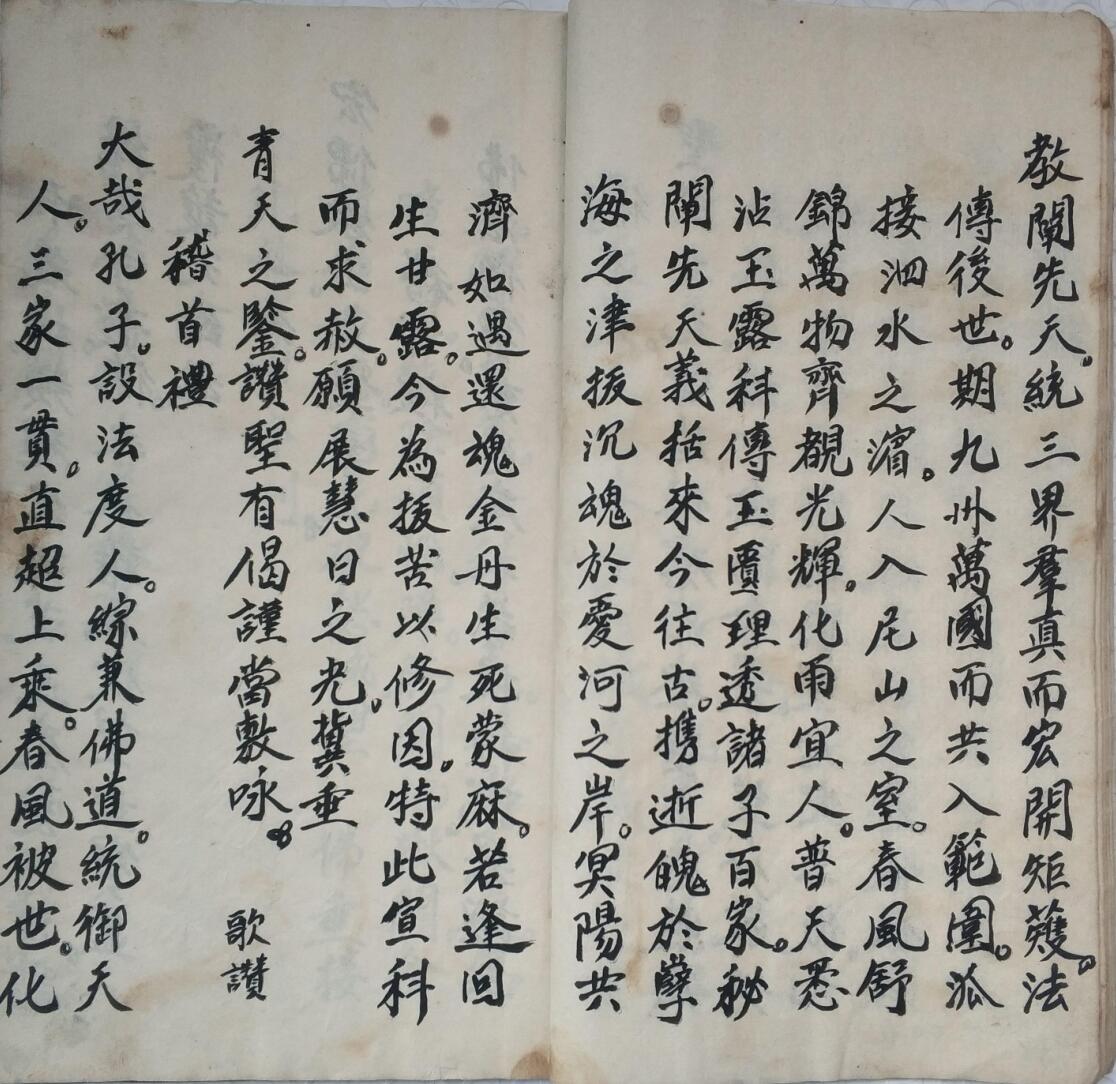 教闡先天。統三界羣真而宏開矩矱。法
傳後世。期九州萬國而共入範圍。派
接泗水之濵。人入尼山之室。春風舒
錦萬物齊覩光輝。化雨宜人。普天悉
沾玉露科傳玉匱理透諸子百家。秘
闡先天義括來今往古。携逝魄於孽
海之津拔沉魂於愛河之岸。冥陽共
濟如遇還魂金丹生死蒙庥。若逢回
生甘露。今為拔苦以修因。特此宣科
而求赦。願展慧日之光。冀垂
青天之鑒。讚聖有偈謹當敷咏。 歌讚
稽首禮
大哉孔子。設法度人。綜兼佛道。統御天
人。三家一貫。直超上乘。春風被世。化